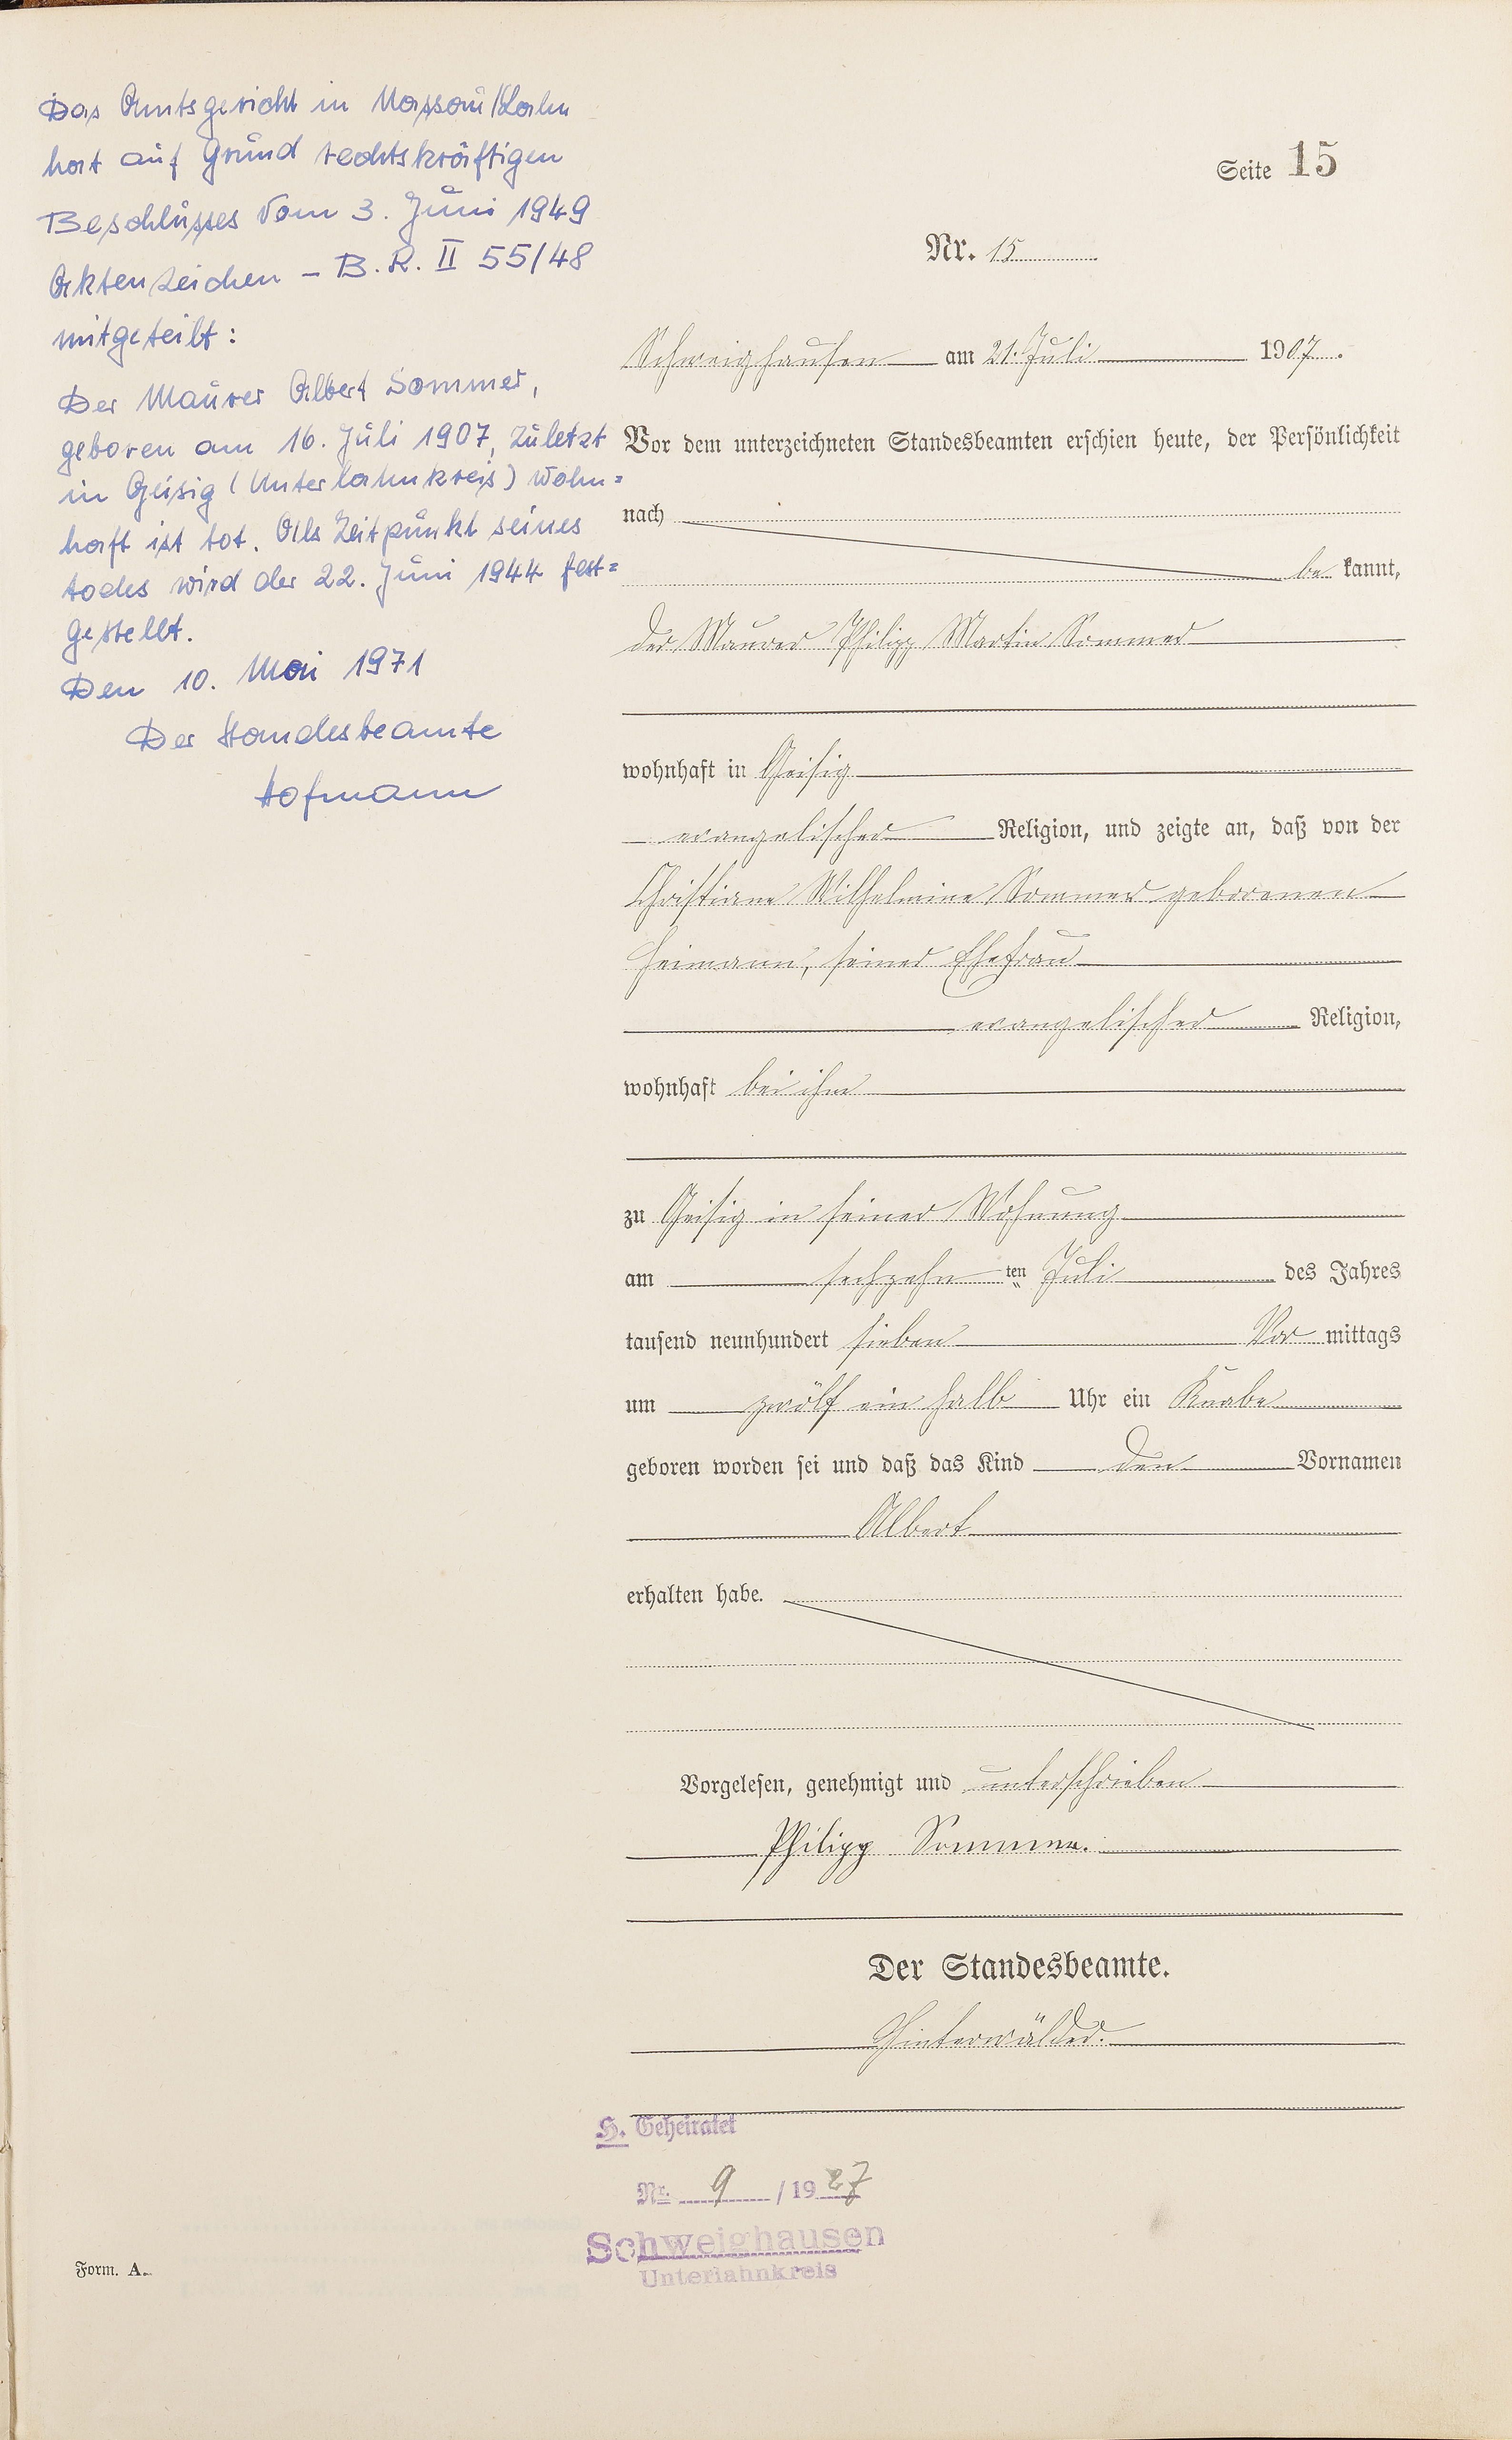 Das Amtsgericht in Nassau/Lahn
hat auf Grund rechtskräftigen
Beschlusses vom 3. Juni 1949
Aktenzeichen – B. R. II 55/48
mitgeteilt:
Der Maurer Albert Sommer,
geboren am 16. Juli 1907, zuletzt
in Geisig (Unterlahnkreis) wohn=
haft ist tot. Als Zeitpunkt seines
todes wird der 22. Juni 1944 fest=
gestellt.
Den 10. Mai 1971
Der Standesbeamte
Hofmann
Seite 15
Nr. 15
Schweighausen am 21. Juli 1907.
Vor dem unterzeichneten Standesbeamten erschien heute, der Persönlichkeit
nach
be kannt,
der Maurer Philipp Martin Sommer
wohnhaft in Geisig
evangelischer Religion, und zeigte an, daß von der
Christiane Wilhelmine Sommer geborenen
Heimann, seiner Ehefrau
evangelischer Religion,
wohnhaft bei ihm
zu Geisig in seiner Wohnung
am sechzehn ten Juli des Jahres
tausend neunhundert sieben Vor mittags
um zwölf ein halb Uhr ein Knabe
geboren worden sei und daß das Kind den Vornamen
Albert
erhalten habe.
Vorgelesen, genehmigt und unterschrieben
Philipp Sommer.
Der Standesbeamte.
Hinterwälder.
H. Geheiratet
Nr. 9 / 1927
Schweighausen
Unterlahnkreis
Form. A.